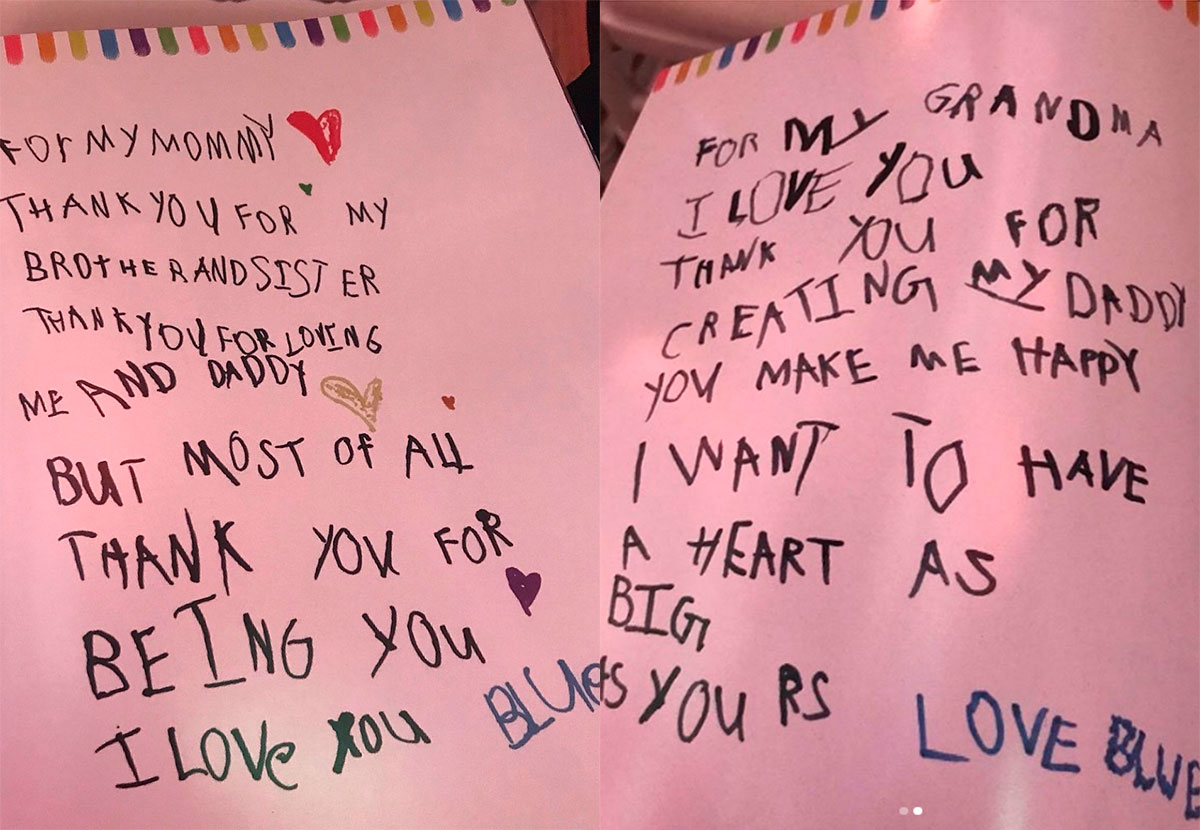 FOr MY MOMMY
THANK YOU FOR MY
BROtHER AND SISTER
THANK YOU FOR LOVING
ME AND DADDY
BUT MOST Of ALL
THANK YOU FOR
BEING YOU
I LOVe YOU BLUe
FOR MY GRANDMA
I LOVE YOU
THANK YOU FOR
CREATING MY DADDY
YOU MAKE ME HAPPY
I WANT TO HAVE
A HEART AS
BIG
AS YOURS LOVE BLUE